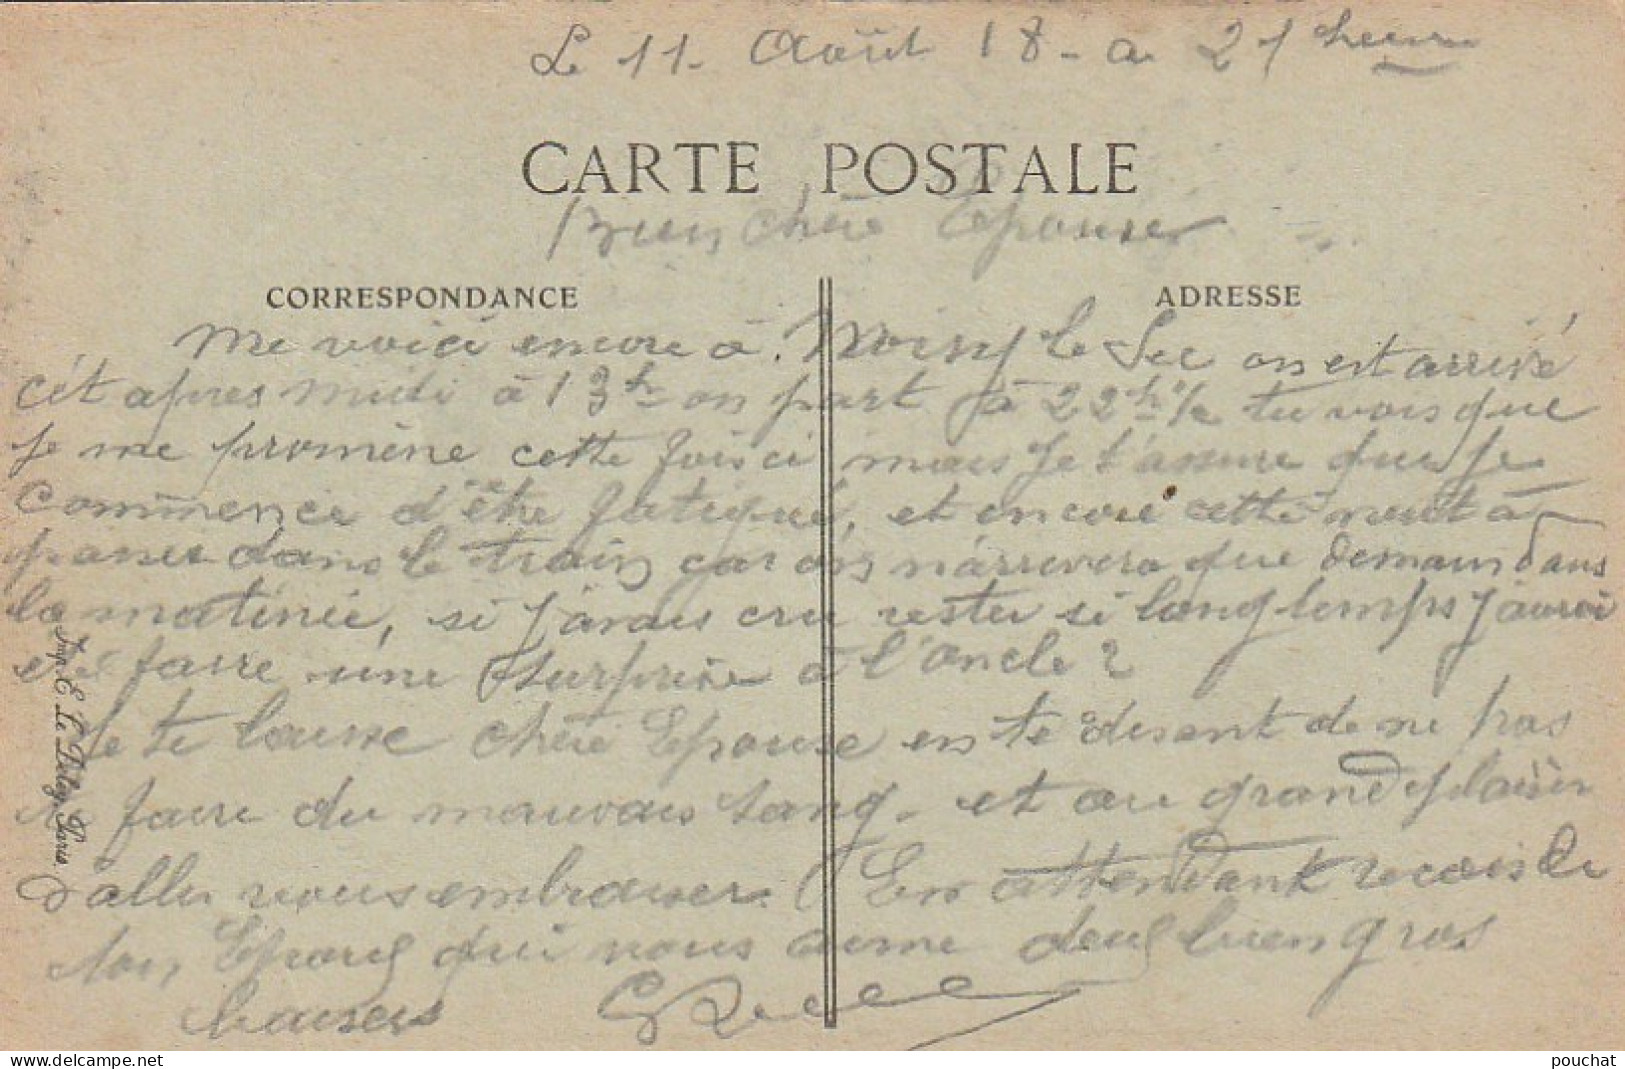 Le 11 Août 18 - a 21 heures
CARTE POSTALE
Bien chère Epouse
CORRESPONDANCE
ADRESSE
Me voici encore à Noisy le Sec on est arrivé
cét apres midi à 13h on part à 22h 1/2 tu vois que
je me promène cette fois ci mais je t'assure que je
commence d'être fatigué, et encore cette nuit à
passer dans le train car on n'arrivera que demain dans
la matinée, si j'avais cru rester si longtemps j'aurai
été faire une surprise à l'oncle ?
Je te laisse chère Epouse en te disant de ne pas
te faire du mauvais sang - et au grand plaisir
d'aller vous embrasser. En attendant recois de
ton Epoux qui vous aime deux bien gros
baisers
Imp. E. Le Deley, Paris.
pouchat